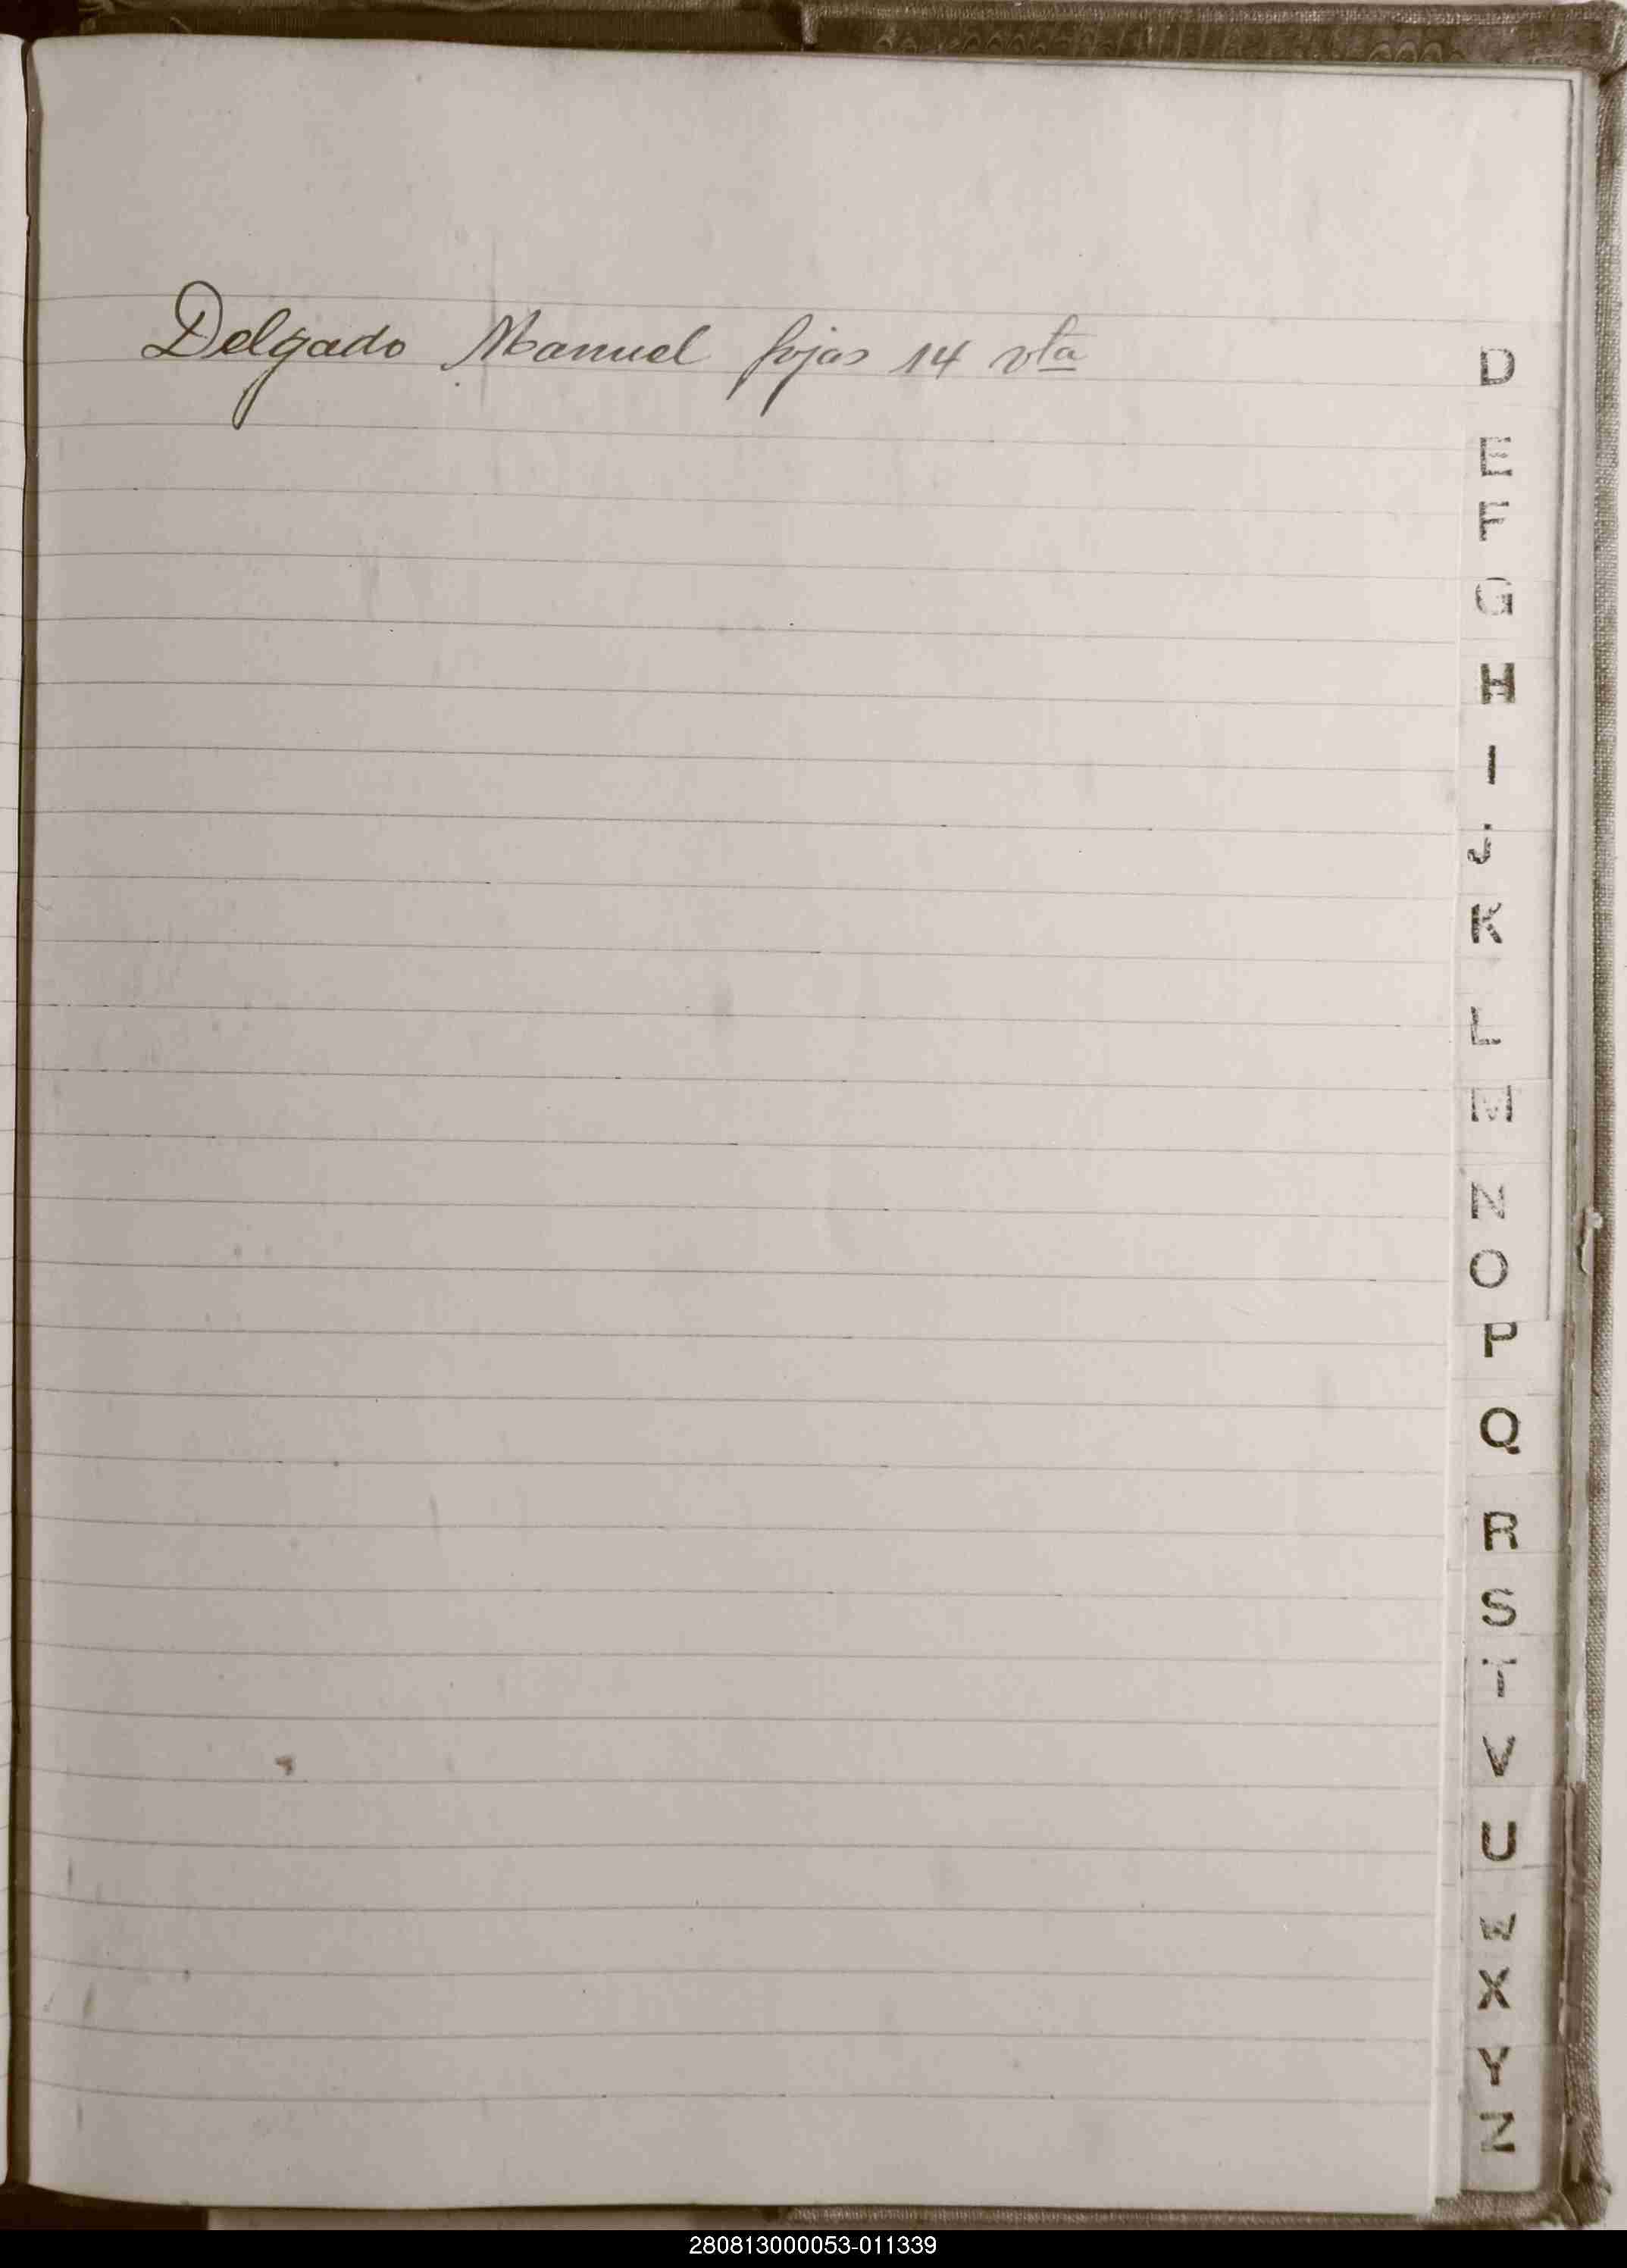 Delgado Manuel fojas 14 vta
D
E
F
G
H
I
J
K
L
M
N
O
P
Q
R
S
T
V
U
W
X
Y
Z
280813000053-011339